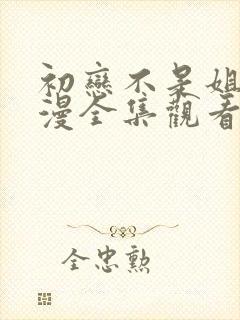 初戀不呆姐
漫全集觀看
全忠勲